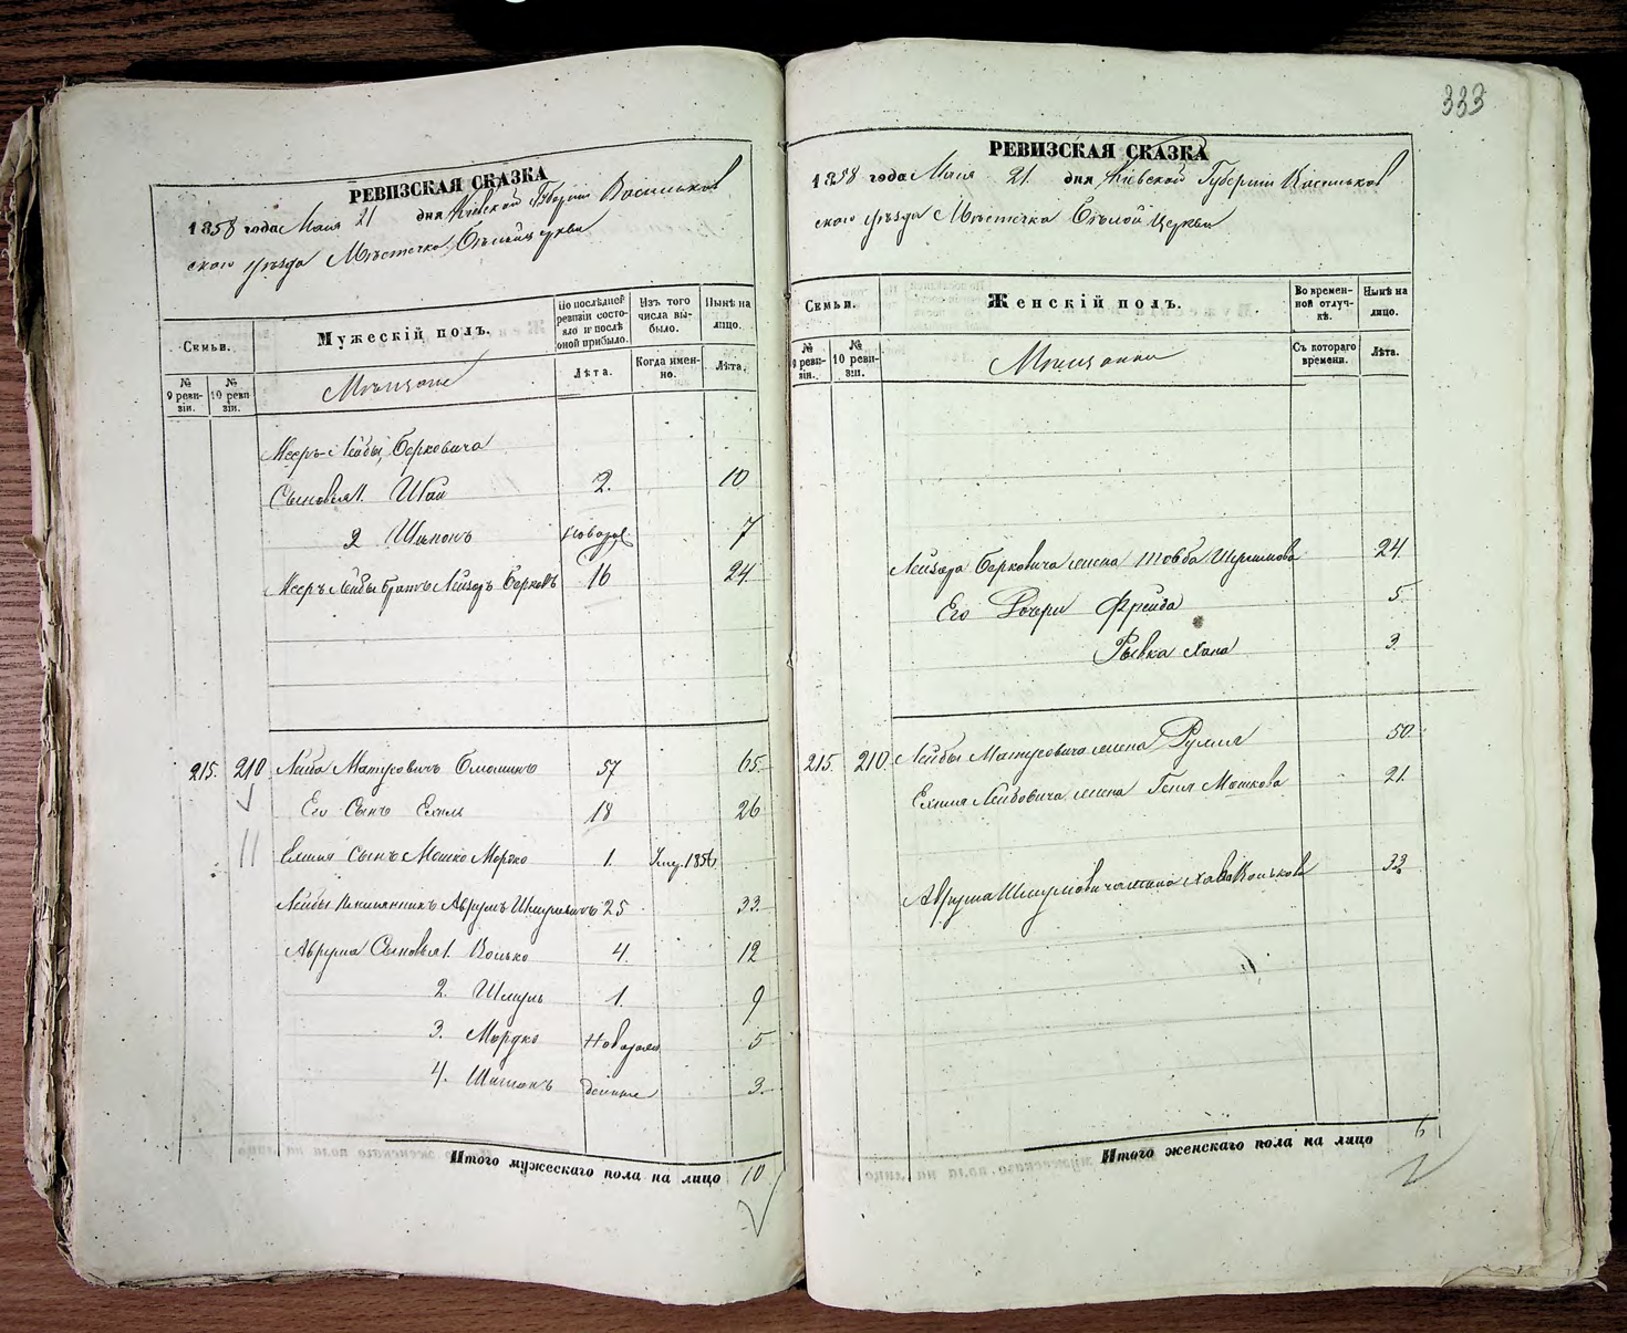 333
РЕВИЗСКАЯ СКАЗКА
1858 года Маія 21 дня Кіевской Губерніи Васильков
скаго уѣзда Мѣстечка Бѣлой Церкви
Семьи.
Мужескій полъ.
По послѣдней ревизіи состояло и послѣ оной прибыло.
Изъ того числа выбыло.
Нынѣ на лицо.
№ 9 ревизіи.
№ 10 ревизіи.
Мѣщане
Лѣта.
Когда именно.
Лѣта.
Мееръ-Лейбы Берковича
Сыновья 1. Шая 2. 10
2 Шимонъ новорож. 7
Мееръ Лейбы братъ Лейзоръ Берковъ 16 24
215. 210 Лейба Матусовичъ 57 65.
Его Сынъ Ехиль 18 26
Ехиля Сынъ Мошко Мордко 1. Умер. 1856
Лейбы племянникъ Аврумъ Шмулевичъ 25 33.
Аврума Сыновья 1. Волько 4. 12
2. Шмуль 1. 9
3. Мордко Новорож 5
4. Шимонъ денные 3.
Итого мужескаго пола на лицо 10
РЕВИЗСКАЯ СКАЗКА
1858 года Маія 21. дня Кіевской Губерніи Васильков
скаго уѣзда Мѣстечка Бѣлой Церкви
Семьи.
Женскій полъ.
Во временной отлучкѣ.
Нынѣ на лицо.
№ 9 ревизіи.
№ 10 ревизіи.
Мѣщанки
Съ котораго времени.
Лѣта.
Лейзора Берковича жена Товба 24
Его Дочери Фрейда 5.
Рывка Хана 3.
215. 210. Лейбы Матусовича жена 50.
Ехиля Лейбовича жена Геня Мошкова 21.
Аврума Шмулевича жена Хава Волькова 33
Итого женскаго пола на лицо 6